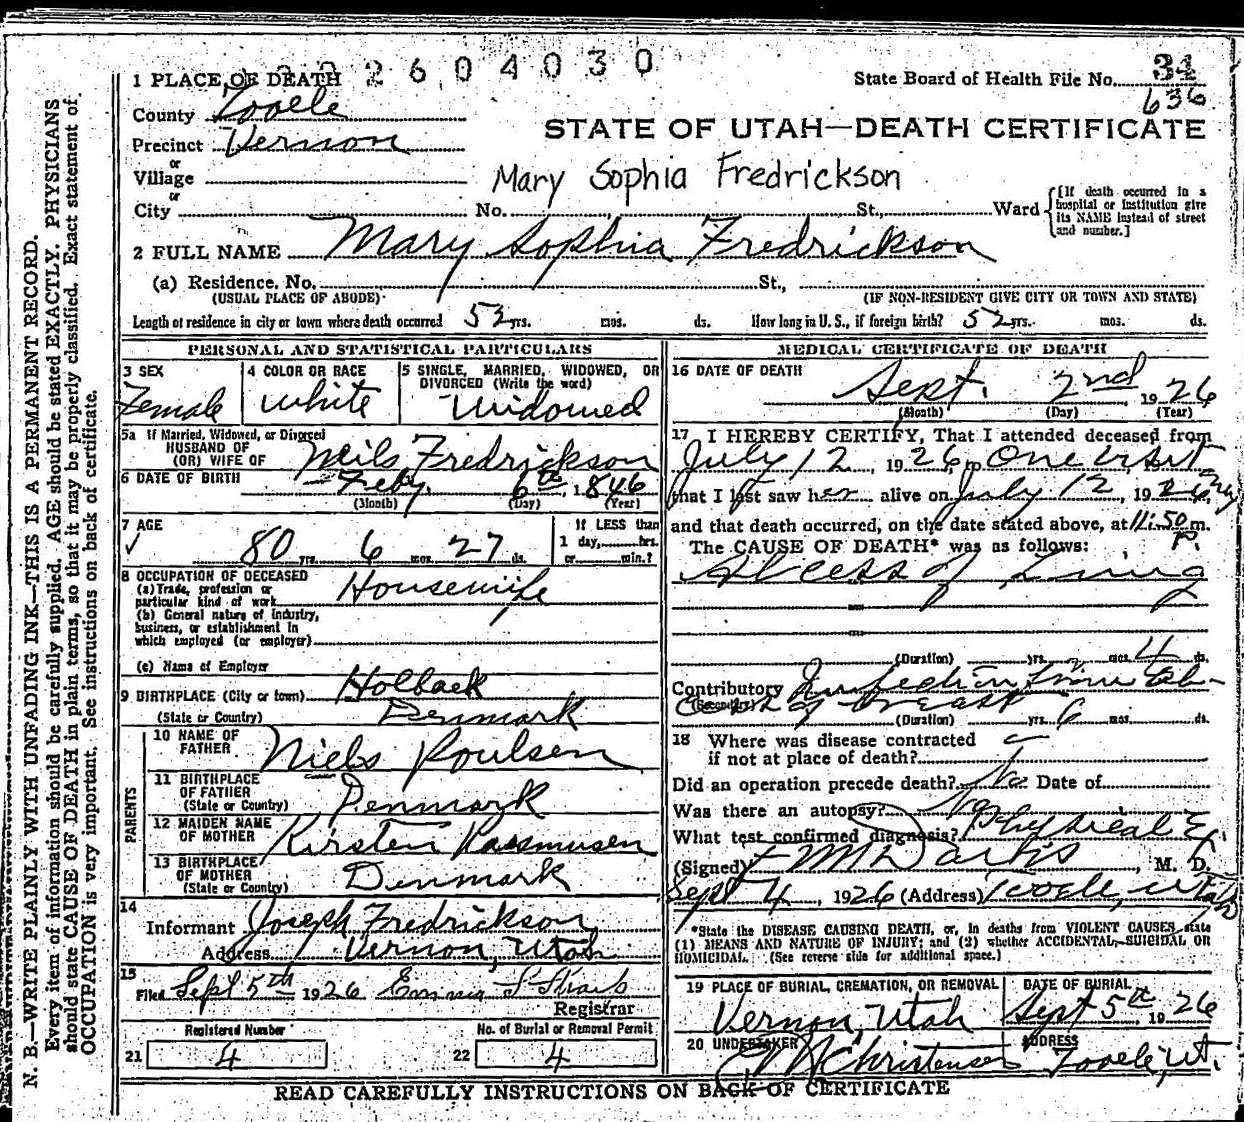 2604030
1 PLACE OF DEATH
State Board of Health File No. 34
636
County Tooele
STATE OF UTAH—DEATH CERTIFICATE
Precinct Vernon
or
Village
Mary Sophia Fredrickson
or
City No. St., Ward
[If death occurred in a hospital or institution give its NAME instead of street and number.]
2 FULL NAME Mary Sophia Fredrickson
(a) Residence, No. St.,
(USUAL PLACE OF ABODE) (IF NON-RESIDENT GIVE CITY OR TOWN AND STATE)
Length of residence in city or town where death occurred 52 yrs. mos. ds. How long in U.S., if foreign birth? 52 yrs. mos. ds.
PERSONAL AND STATISTICAL PARTICULARS
3 SEX Female
4 COLOR OR RACE White
5 SINGLE, MARRIED, WIDOWED, OR DIVORCED (Write the word) Widowed
5a If Married, Widowed, or Divorced
HUSBAND OF
(OR) WIFE OF Neils Fredrickson
6 DATE OF BIRTH Feby. 6th, 1846
(Month) (Day) (Year)
7 AGE
80 yrs. 6 mos. 27 ds.
If LESS than 1 day, hrs. or min.?
8 OCCUPATION OF DECEASED
(a) Trade, profession or particular kind of work Housewife
(b) General nature of industry, business, or establishment in which employed (or employer)
(c) Name of Employer
9 BIRTHPLACE (City or town) Holback
(State or Country) Denmark
PARENTS
10 NAME OF FATHER Niels Poulsen
11 BIRTHPLACE OF FATHER (State or Country) Denmark
12 MAIDEN NAME OF MOTHER Kirsten Rasmusen
13 BIRTHPLACE OF MOTHER (State or Country) Denmark
14
Informant Joseph Fredrickson
Address Vernon, Utah
15
Filed Sept 5th 1926 Emma
Registrar
Registered Number
21 4
No. of Burial or Removal Permit
22 4
MEDICAL CERTIFICATE OF DEATH
16 DATE OF DEATH
Sept. 2nd 1926
(Month) (Day) (Year)
17 I HEREBY CERTIFY, That I attended deceased from
July 12, 1926, to one visit
that I last saw her alive on July 12, 1926,
and that death occurred, on the date stated above, at 11:50 m.
P.
The CAUSE OF DEATH* was as follows:
Abcess of Lung
(Duration) yrs. mos. 4 ds.
Contributory Infection from
(Secondary) of breast
(Duration) yrs. 6 mos. ds.
18 Where was disease contracted
if not at place of death?
Did an operation precede death? No Date of
Was there an autopsy? None
What test confirmed diagnosis? Physical Ex
(Signed) F M Davis, M. D.
Sept 4, 1926 (Address) Tooele, Utah
*State the DISEASE CAUSING DEATH, or, in deaths from VIOLENT CAUSES, state
(1) MEANS AND NATURE OF INJURY; and (2) whether ACCIDENTAL, SUICIDAL OR
HOMICIDAL. (See reverse side for additional space.)
19 PLACE OF BURIAL, CREMATION, OR REMOVAL
Vernon, Utah
DATE OF BURIAL
Sept 5th 1926
20 UNDERTAKER
Christensen
ADDRESS
Tooele, Ut.
READ CAREFULLY INSTRUCTIONS ON BACK OF CERTIFICATE
N. B.—WRITE PLAINLY WITH UNFADING INK—THIS IS A PERMANENT RECORD.
Every item of information should be carefully supplied. AGE should be stated EXACTLY. PHYSICIANS
should state CAUSE OF DEATH in plain terms, so that it may be properly classified. Exact statement of
OCCUPATION is very important. See instructions on back of certificate.